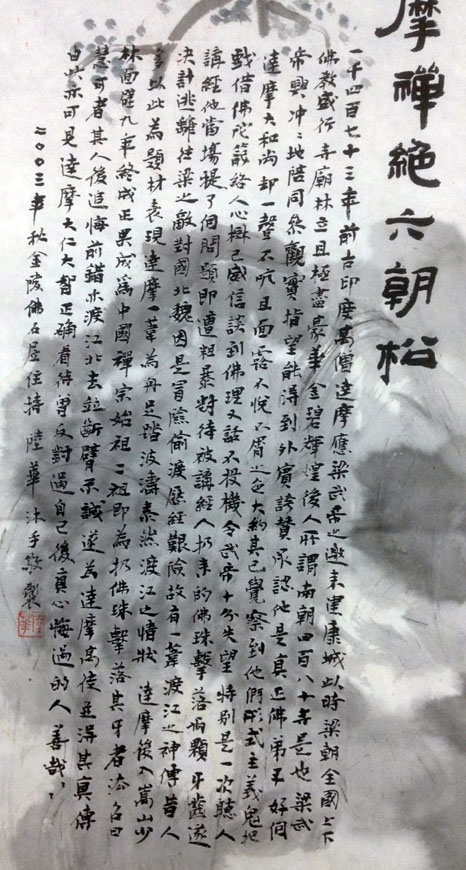 摩禅絶六朝松
一千四百七十三年前古印度高僧達摩應梁武帝之邀来建康城此時梁朝全國上下
佛教盛行寺廟林立且極盡豪華金碧輝煌後人所謂南朝四百八十寺是也梁武
帝興冲冲地陪同参觀實指望能得到外賓誇賛承認他是真正佛弟子好伺
達摩大和尚却一聲不吭且面露不悦不屑之色大約其已覺察到他們形式主義鬼把
戲借佛陀籠絡人心樹己威信談到佛理又話不投機令武帝十分失望特别是一次聽人
講經他當場提了個問題即遭粗暴對待被講經人扔来的佛珠擊落两顆牙齒遂
决計逃離往梁之敵對國北魏因是冒險偷渡歷經艱險故有一葦渡江之神傳昔人
多以此為題材表現達摩一葦為舟足踏波濤泰然渡江之情狀達摩後入嵩山少
林面壁九年終成正果成為中國禅宗始祖二祖即為扔佛珠擊落其牙者添名曰
慧可者其人後追悔前錯亦渡江北去並斷臂示誠遂為達摩高徒並得其真傳
由此亦可見達摩大仁大智正确看待曾反對過自己後真心悔過的人善哉
二〇〇三年秋金陵佛石居住持陸華沐手敬製